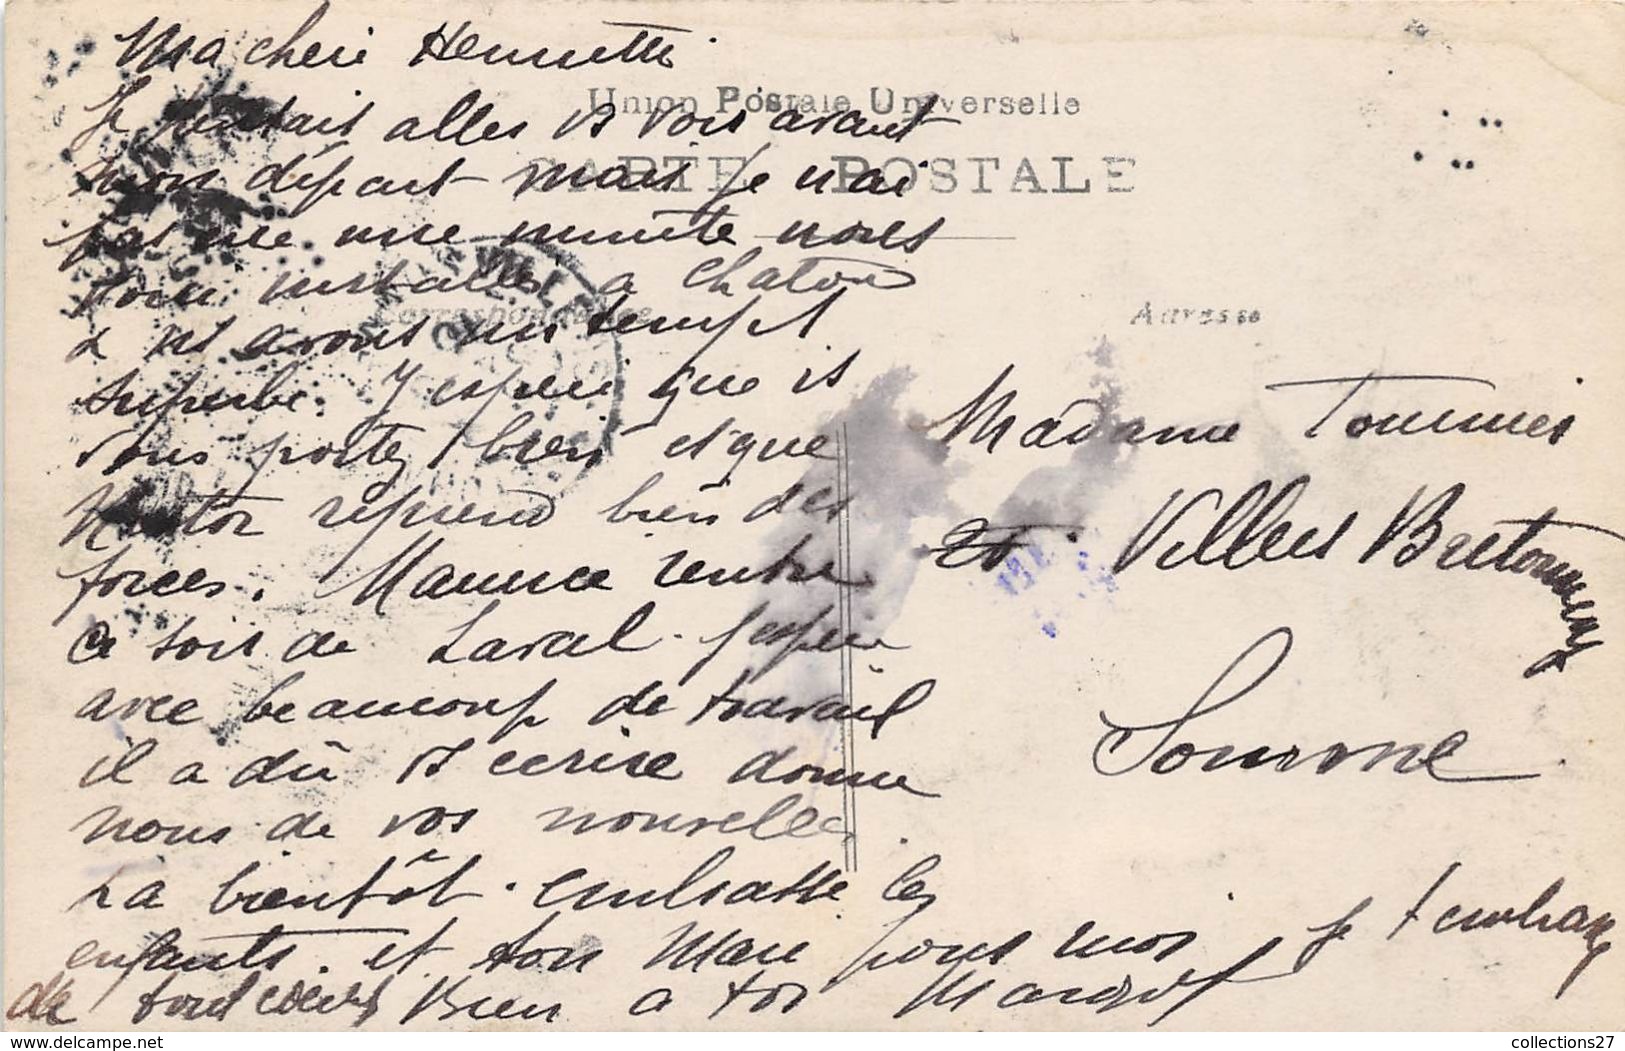 Ma cheri Henriette
Je voulais aller vs voir avant
mon départ mais je n'ai
pas eu une minute nous
voici installés a Chatou
& ns avons un temps
superbe. J'espère que
vous portez bien et que
Nestor reprend bien des
forces. Maurice rentre
ce soir de Laval. J'espère
avec beaucoup de travail
il a dû vs ecrire donne
nous de vos nouvelles.
A bientôt. embrasse les
enfants. et ton Mari pour moi je t'embrasse
de tout coeur Bien a toi Margot
Union Postale Universelle
CARTE POSTALE
Correspondance
Adresse
Madame
Villers Bretonneux
Somme
www.delcampe.net
collections27